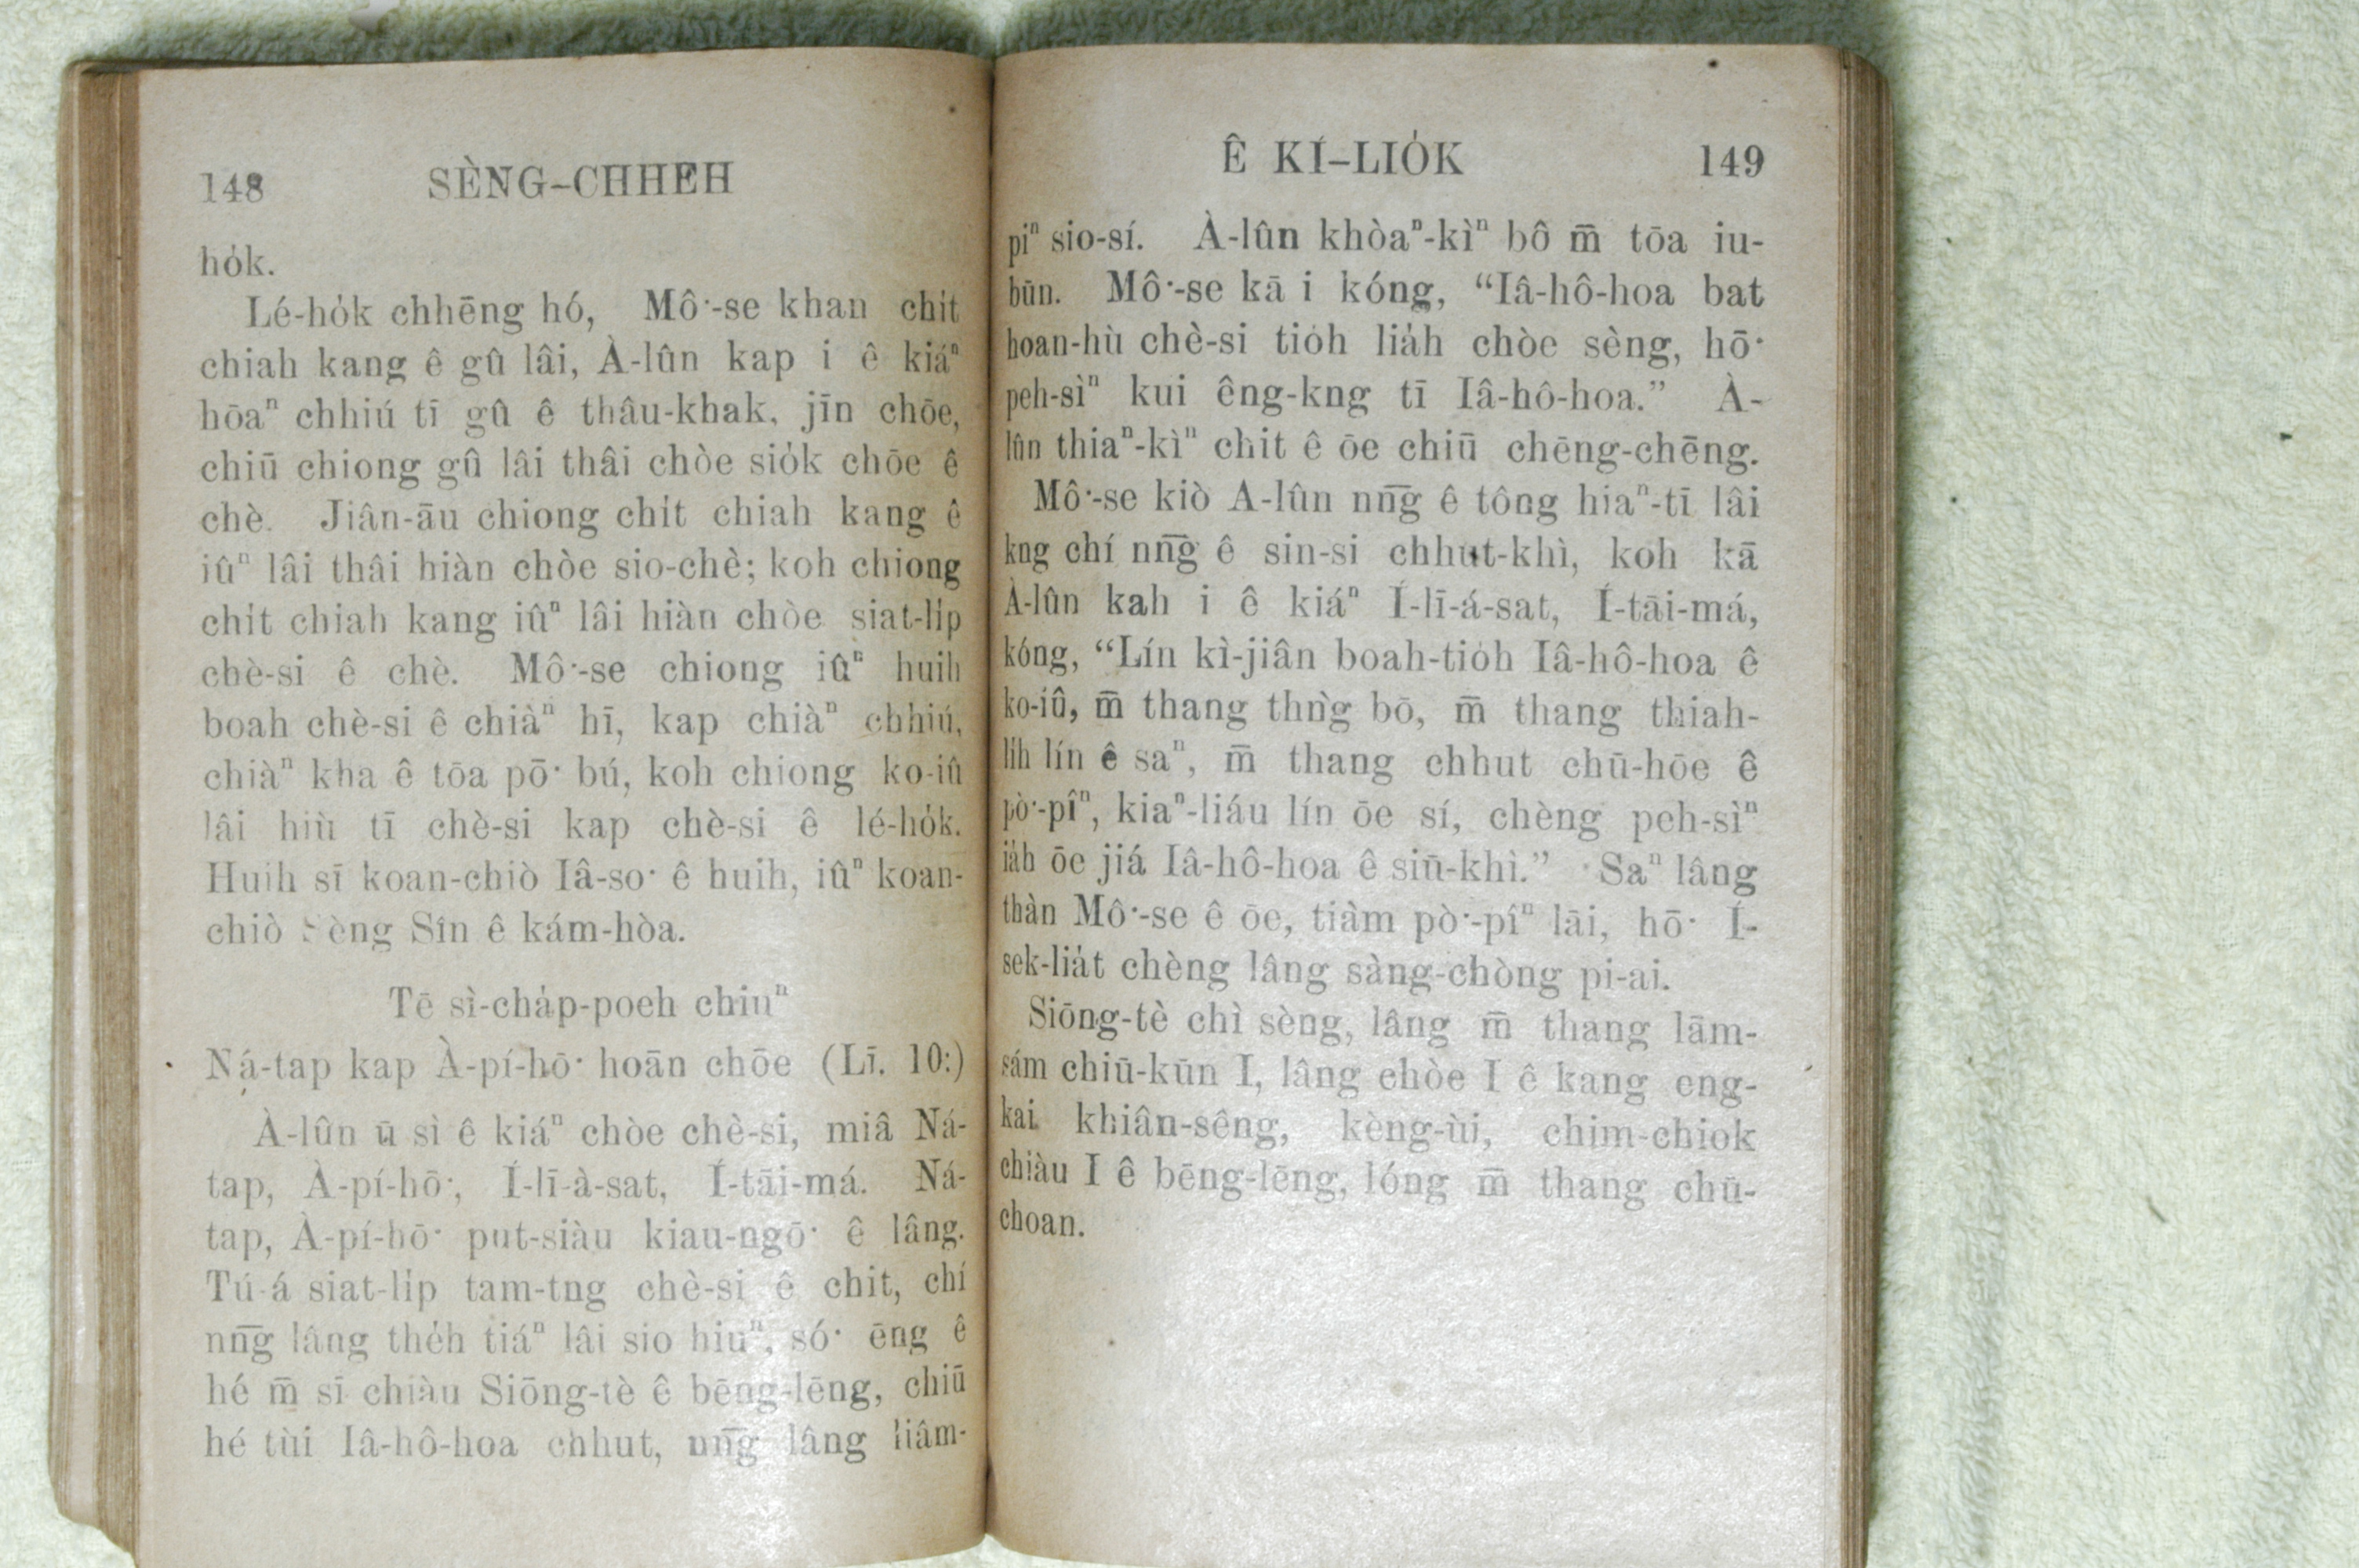 148 SÈNG-CHHEH
ho̍k.
Lé-ho̍k chhēng hó, Mô͘-se khan chi̍t
chiah kang ê gû lâi, À-lûn kap i ê kiáⁿ
hōaⁿ chhiú tī gû ê thâu-khak, jīn chōe,
chiū chiong gû lâi thâi chòe sio̍k chōe ê
chè. Jiân-āu chiong chi̍t chiah kang ê
iûⁿ lâi thâi hiàn chòe sio-chè; koh chiong
chi̍t chiah kang iûⁿ lâi hiàn chòe siat-li̍p
chè-si ê chè. Mô͘-se chiong iûⁿ huih
boah chè-si ê chiàⁿ hī, kap chiàⁿ chhiú,
chiàⁿ kha ê tōa pō͘ bú, koh chiong ko-iû
lâi hiù tī chè-si kap chè-si ê lé-ho̍k.
Huih sī koan-chiò Iâ-so͘ ê huih, iûⁿ koan-
chiò Sèng Sîn ê kám-hòa.
Tē sì-cha̍p-poeh chiuⁿ
Ná-tap kap À-pí-hō͘ hoān chōe (Lī. 10:)
À-lûn ū sì ê kiáⁿ chòe chè-si, miâ Ná-
tap, À-pí-hō͘, Í-lī-à-sat, Í-tāi-má. Ná-
tap, À-pí-hō͘ put-siàu kiau-ngō͘ ê lâng.
Tú-á siat-li̍p tam-tng chè-si ê chit, chí
nn̄g lâng the̍h tiáⁿ lâi sio hiuⁿ, só͘ ēng ê
hé m̄ sī chiàu Siōng-tè ê bēng-lēng, chiū
hé tùi Iâ-hô-hoa chhut, nn̄g lâng liâm-
Ê KÍ-LIO̍K 149
piⁿ sio-sí. À-lûn khòaⁿ-kìⁿ bô m̄ tōa iu-
būn. Mô͘-se kā i kóng, “Iâ-hô-hoa bat
hoan-hù chè-si tio̍h lia̍h chòe sèng, hō͘
peh-sìⁿ kui êng-kng tī Iâ-hô-hoa.” À-
lûn thiaⁿ-kìⁿ chit ê ōe chiū chēng-chēng.
Mô͘-se kiò A-lûn nn̄g ê tông hiaⁿ-tī lâi
kng chí nn̄g ê sin-si chhut-khì, koh kā
À-lûn kah i ê kiáⁿ Í-lī-á-sat, Í-tāi-má,
kóng, “Lín kì-jiân boah-tio̍h Iâ-hô-hoa ê
ko-iû, m̄ thang thǹg bō, m̄ thang thiah-
li̍h lín ê saⁿ, m̄ thang chhut chū-hōe ê
pò͘-pîⁿ, kiaⁿ-liáu lín ōe sí, chèng peh-sìⁿ
ia̍h ōe jiá Iâ-hô-hoa ê siū-khì.” Saⁿ lâng
thàn Mô͘-se ê ōe, tiàm pò͘-pîⁿ lāi, hō͘ Í-
sek-lia̍t chèng lâng sàng-chòng pi-ai.
Siōng-tè chì sèng, lâng m̄ thang lām-
sám chiū-kūn I, lâng chòe I ê kang eng-
kai khiân-sêng, kèng-ùi, chim-chiok
chiàu I ê bēng-lēng, lóng m̄ thang chū-
choan.